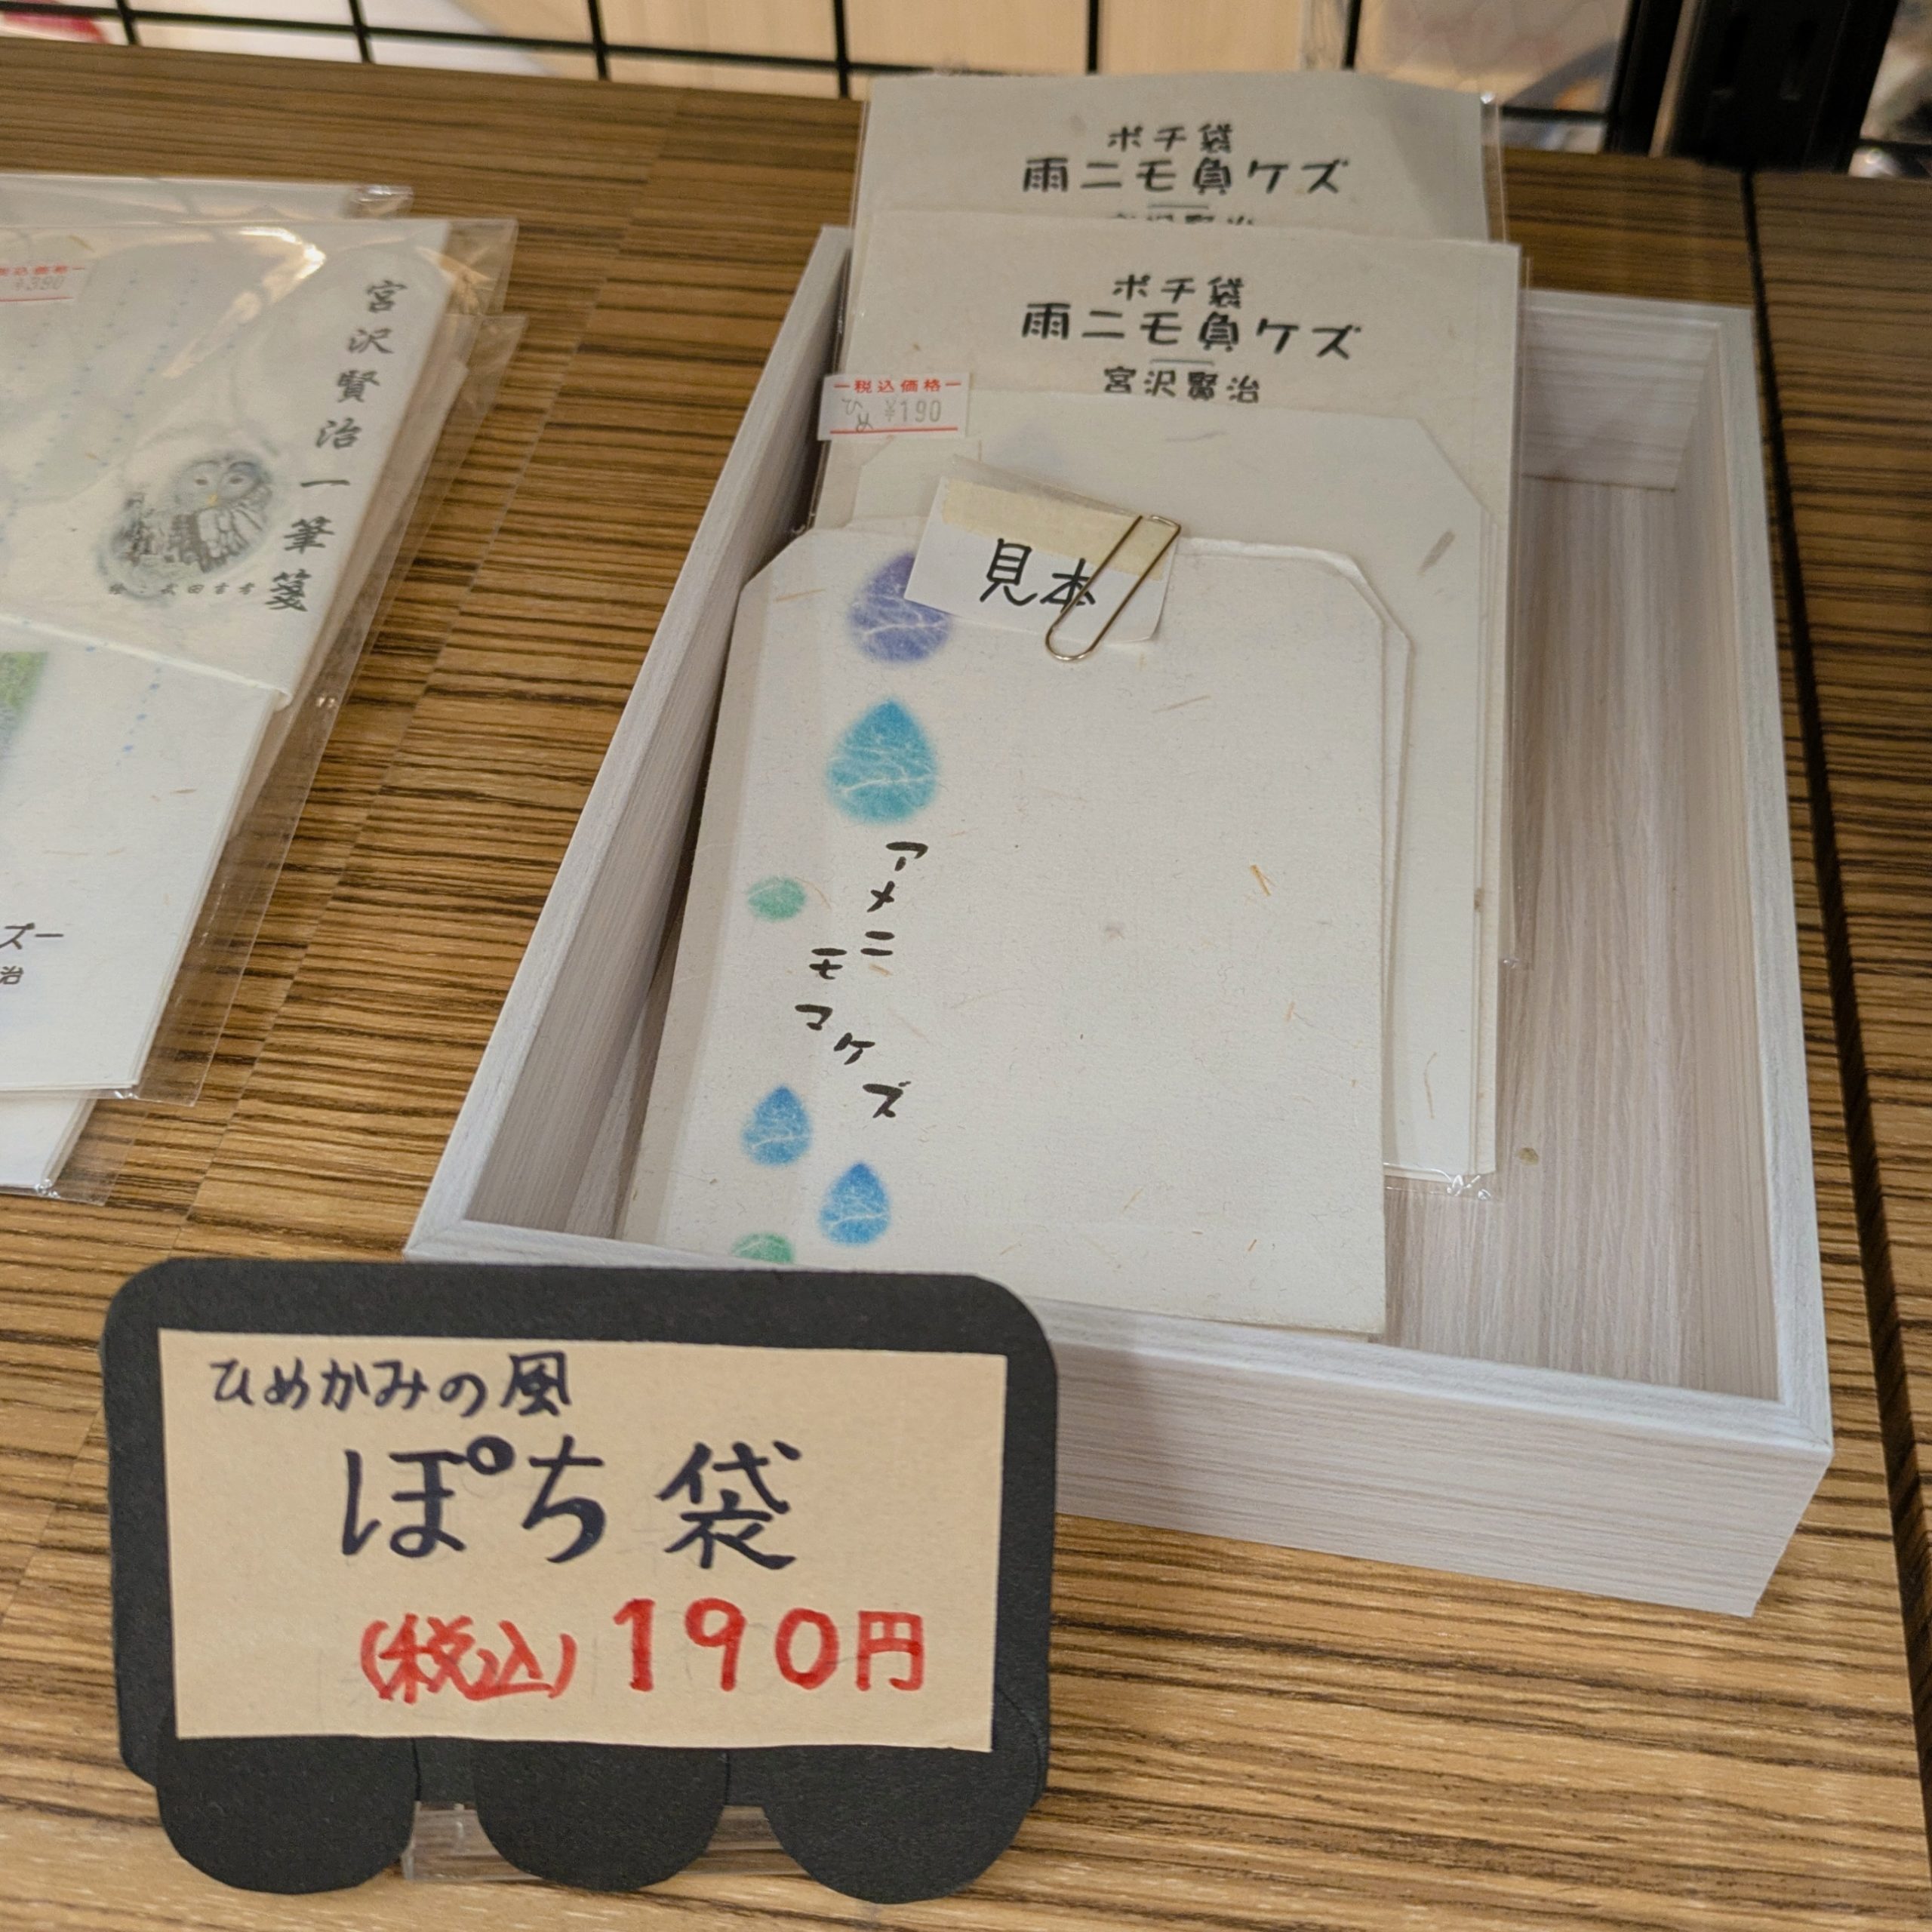 ポチ袋
雨ニモ負ケズ
宮沢賢治
ポチ袋
雨ニモ負ケズ
宮沢賢治
税込価格
ひめ ¥190
見本
アメニモマケズ
税込価格
¥390
宮沢賢治一筆箋
ズー
治
ひめかみの風
ぽち袋
(税込)190円